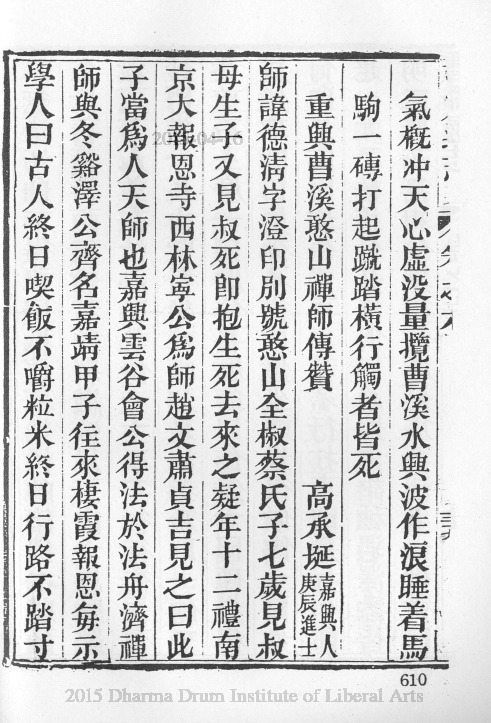 氣概冲天心虛没量攪曹溪水興波作浪睡着馬
駒一磚打起蹴踏橫行觸者皆死
重興曹溪憨山禪師傳贊 高承埏 嘉興人庚辰進士
師諱德清字澄印別號憨山全椒蔡氏子七歲見叔
母生子又見叔死卽抱生死去來之疑年十二禮南
京大報恩寺西林寧公爲師趙文肅貞吉見之曰此
子當爲人天師也嘉興雲谷會公得法於法舟濟禪
師與冬谿澤公齊名嘉靖甲子往來棲霞報恩每示
學人曰古人終日喫飯不嚼粒米終日行路不踏寸
610
2015 Dharma Drum Institute of Liberal Arts